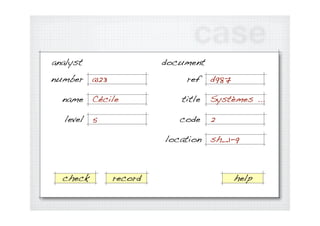 case
analyst document
number a123 ref d987
name Cécile title Systèmes ...
level 5 code 2
location sh_1-9
check record help